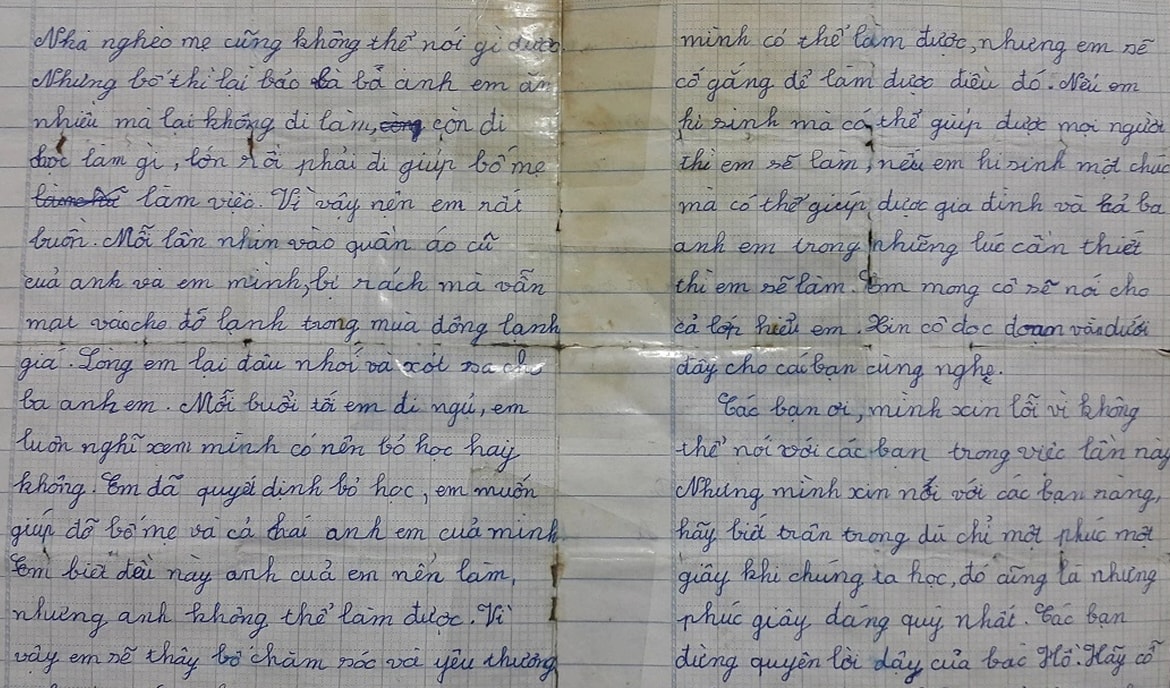 Nhà nghèo mẹ cũng không thể nói gì được.
Nhưng bố thì lại bảo là bả anh em ăn
nhiều mà lại không đi làm, còn đi
học làm gì, lớn rồi phải đi giúp bố mẹ
làm việc. Vì vậy nên em rất
buồn. Mỗi lần nhìn vào quần áo cũ
cuả anh và em mình, bị rách mà vẫn
mặt vào cho đỡ lạnh trong mùa đông lạnh
giá. Lòng em lại đau nhối và xót xa cho
ba anh em. Mỗi buổi tối em đi ngủ, em
luôn nghĩ xem mình có nên bỏ học hay
không. Em đã quyết định bỏ học, em muốn
giúp đỡ bố mẹ và cả hai anh em cuả mình
Em biết đều này anh cuả em nên làm,
nhưng anh không thể làm được. Vì
vậy em sẽ thây bố chăm sóc và yêu thương
mình có thể làm được, nhưng em sẽ
cố gắng để làm được điều đó. Nếu em
hi sinh mà có thể giúp được mọi người
thì em sẽ làm, nếu em hi sinh một chúc
mà có thể giúp được gia đình và cả ba
anh em trong những lúc cần thiết
thì em sẽ làm. Em mong cô sẽ nói cho
cả lớp hiểu em. Xin cô đọc đoạn văn dưới
đây cho các bạn cùng nghe.
Các bạn ơi, mình xin lỗi vì không
thể nói với các bạn trong việc lần này
Nhưng mình xin nói với các bạn rằng,
hãy biết trân trọng dù chỉ một phúc một
giây khi chúng ta học, đó cũng là nhưng
phúc giây đáng quý nhất. Các bạn
đừng quyên lời dậy của bác Hồ. Hãy cố